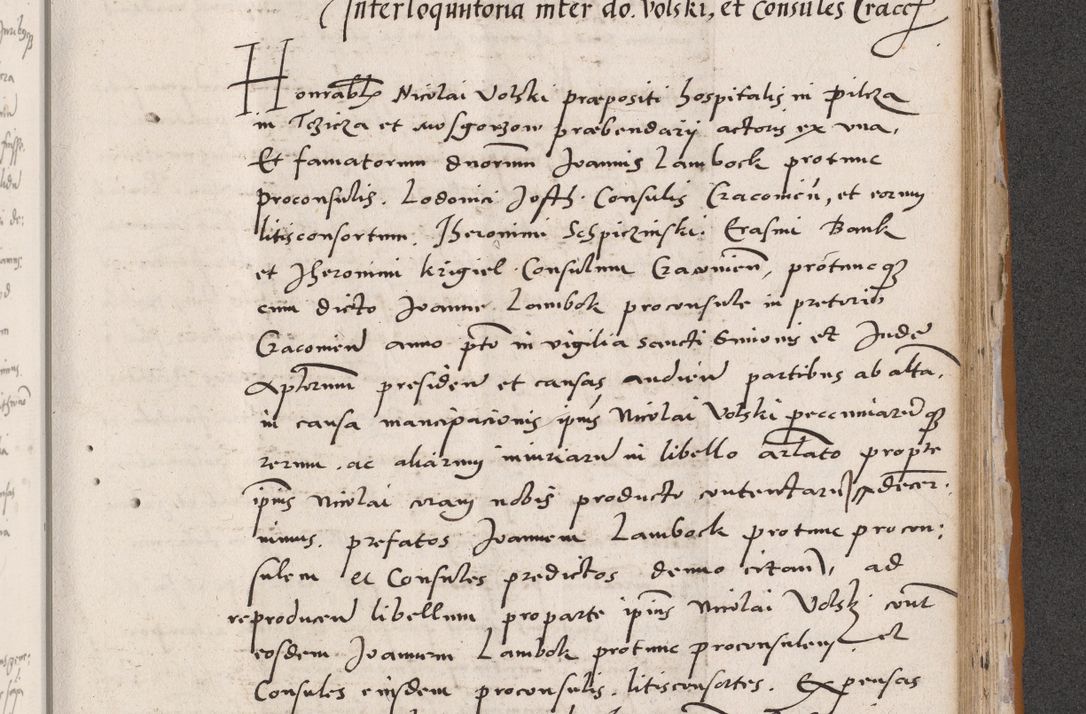 Interloqutoria inter do. Volski, et Consules Cracc
Honrablis Nicolai Volski præpositi hospitalis in Pilcza
in Tczicza et Mosgorzow præbendarij actoris ex vna,
Et famatorum dnorum Joannis Lambock protunc
proconsulis. Lodouici Josth. Consulis Cracouien, et eorum
litisconsortum. Jheronimi Schpiczinski. Erasmi Bank
et Jheronimi Krigiel Consulum Cracouien, protunc
cum dicto Joanne Lambok proconsule in pretorio
Cracouien anno pto in vigilia sancti Simonis et Jude
Aplorum presiden et causas audien partibus ab alta,
in causa mancipacionis ipius Nicolai Volski peccuniarumque
rerum ac aliarum iniuriarum in libello arlato pro pte
ipius Nicolai coram nobis producto contentarum decer:
nimus. prefatos Joannem Lambock protunc procon:
sulem et Consules predictos denuo citan, ad
reproducen libellum pro parte ipius Nicolai Volski cont
eosdem Joannem Lambok protunc proconsulem et
Consules eiusdem proconsulis. litisconsortes. Expensas